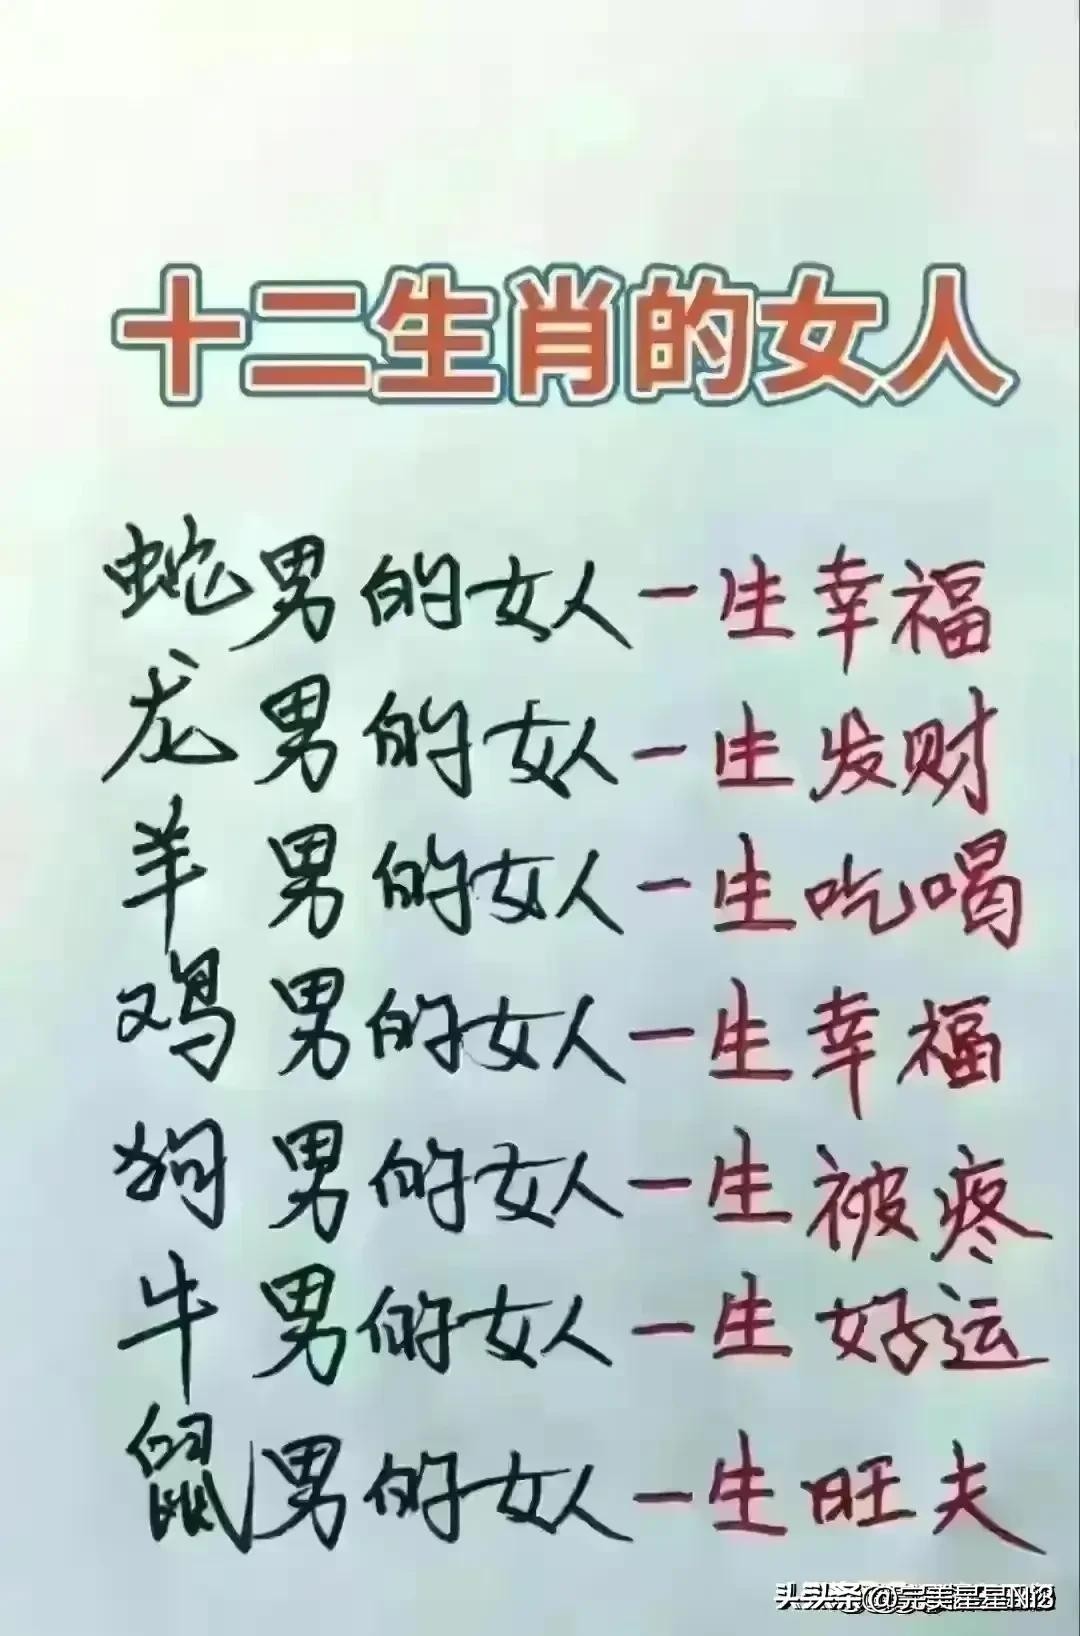 十二生肖的女人
蛇男的女人一生幸福
龙男的女人一生发财
羊男的女人一生吃喝
鸡男的女人一生幸福
狗男的女人一生被疼
牛男的女人一生好运
鼠男的女人一生旺夫
头条@完美星星